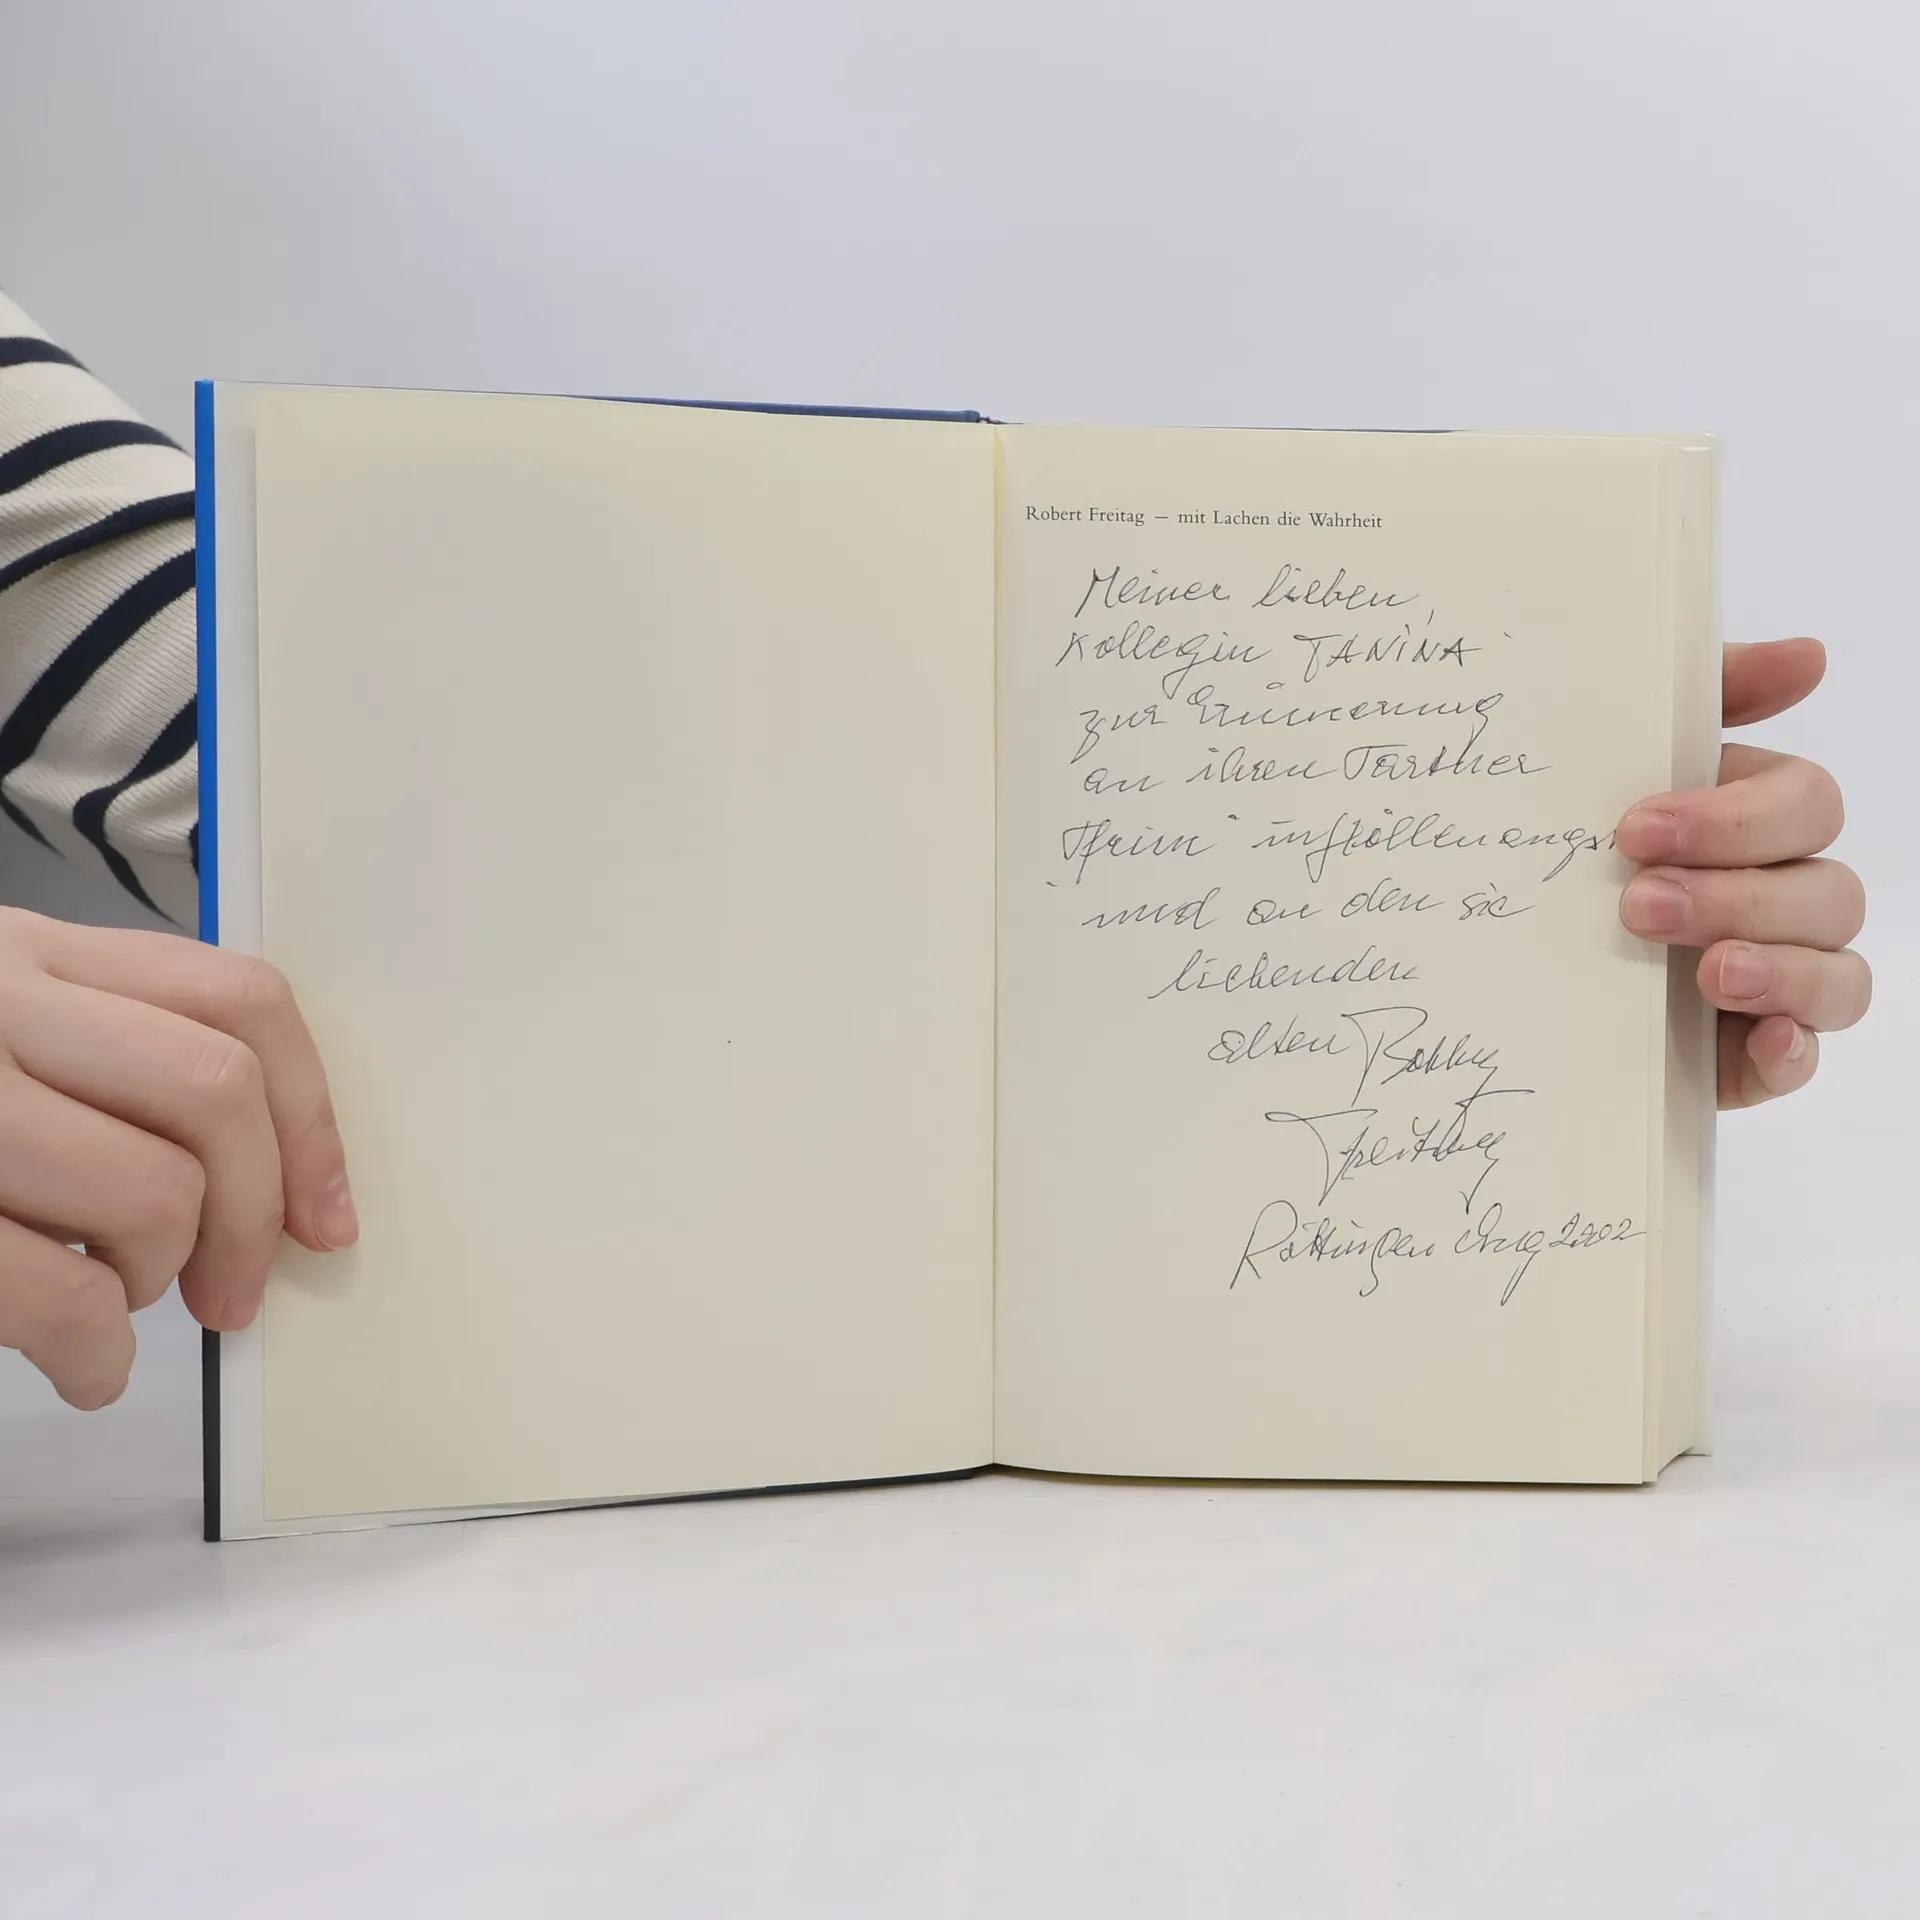 Robert Freitag – mit Lachen die Wahrheit
Meiner lieben
Kollegin TANINA
zur Erinnerung
an ihren Partner
"Pfrim" in Höllenangst
und an den sie
liebenden
alten Bobby
Freitag
Röttingen Aug 2002